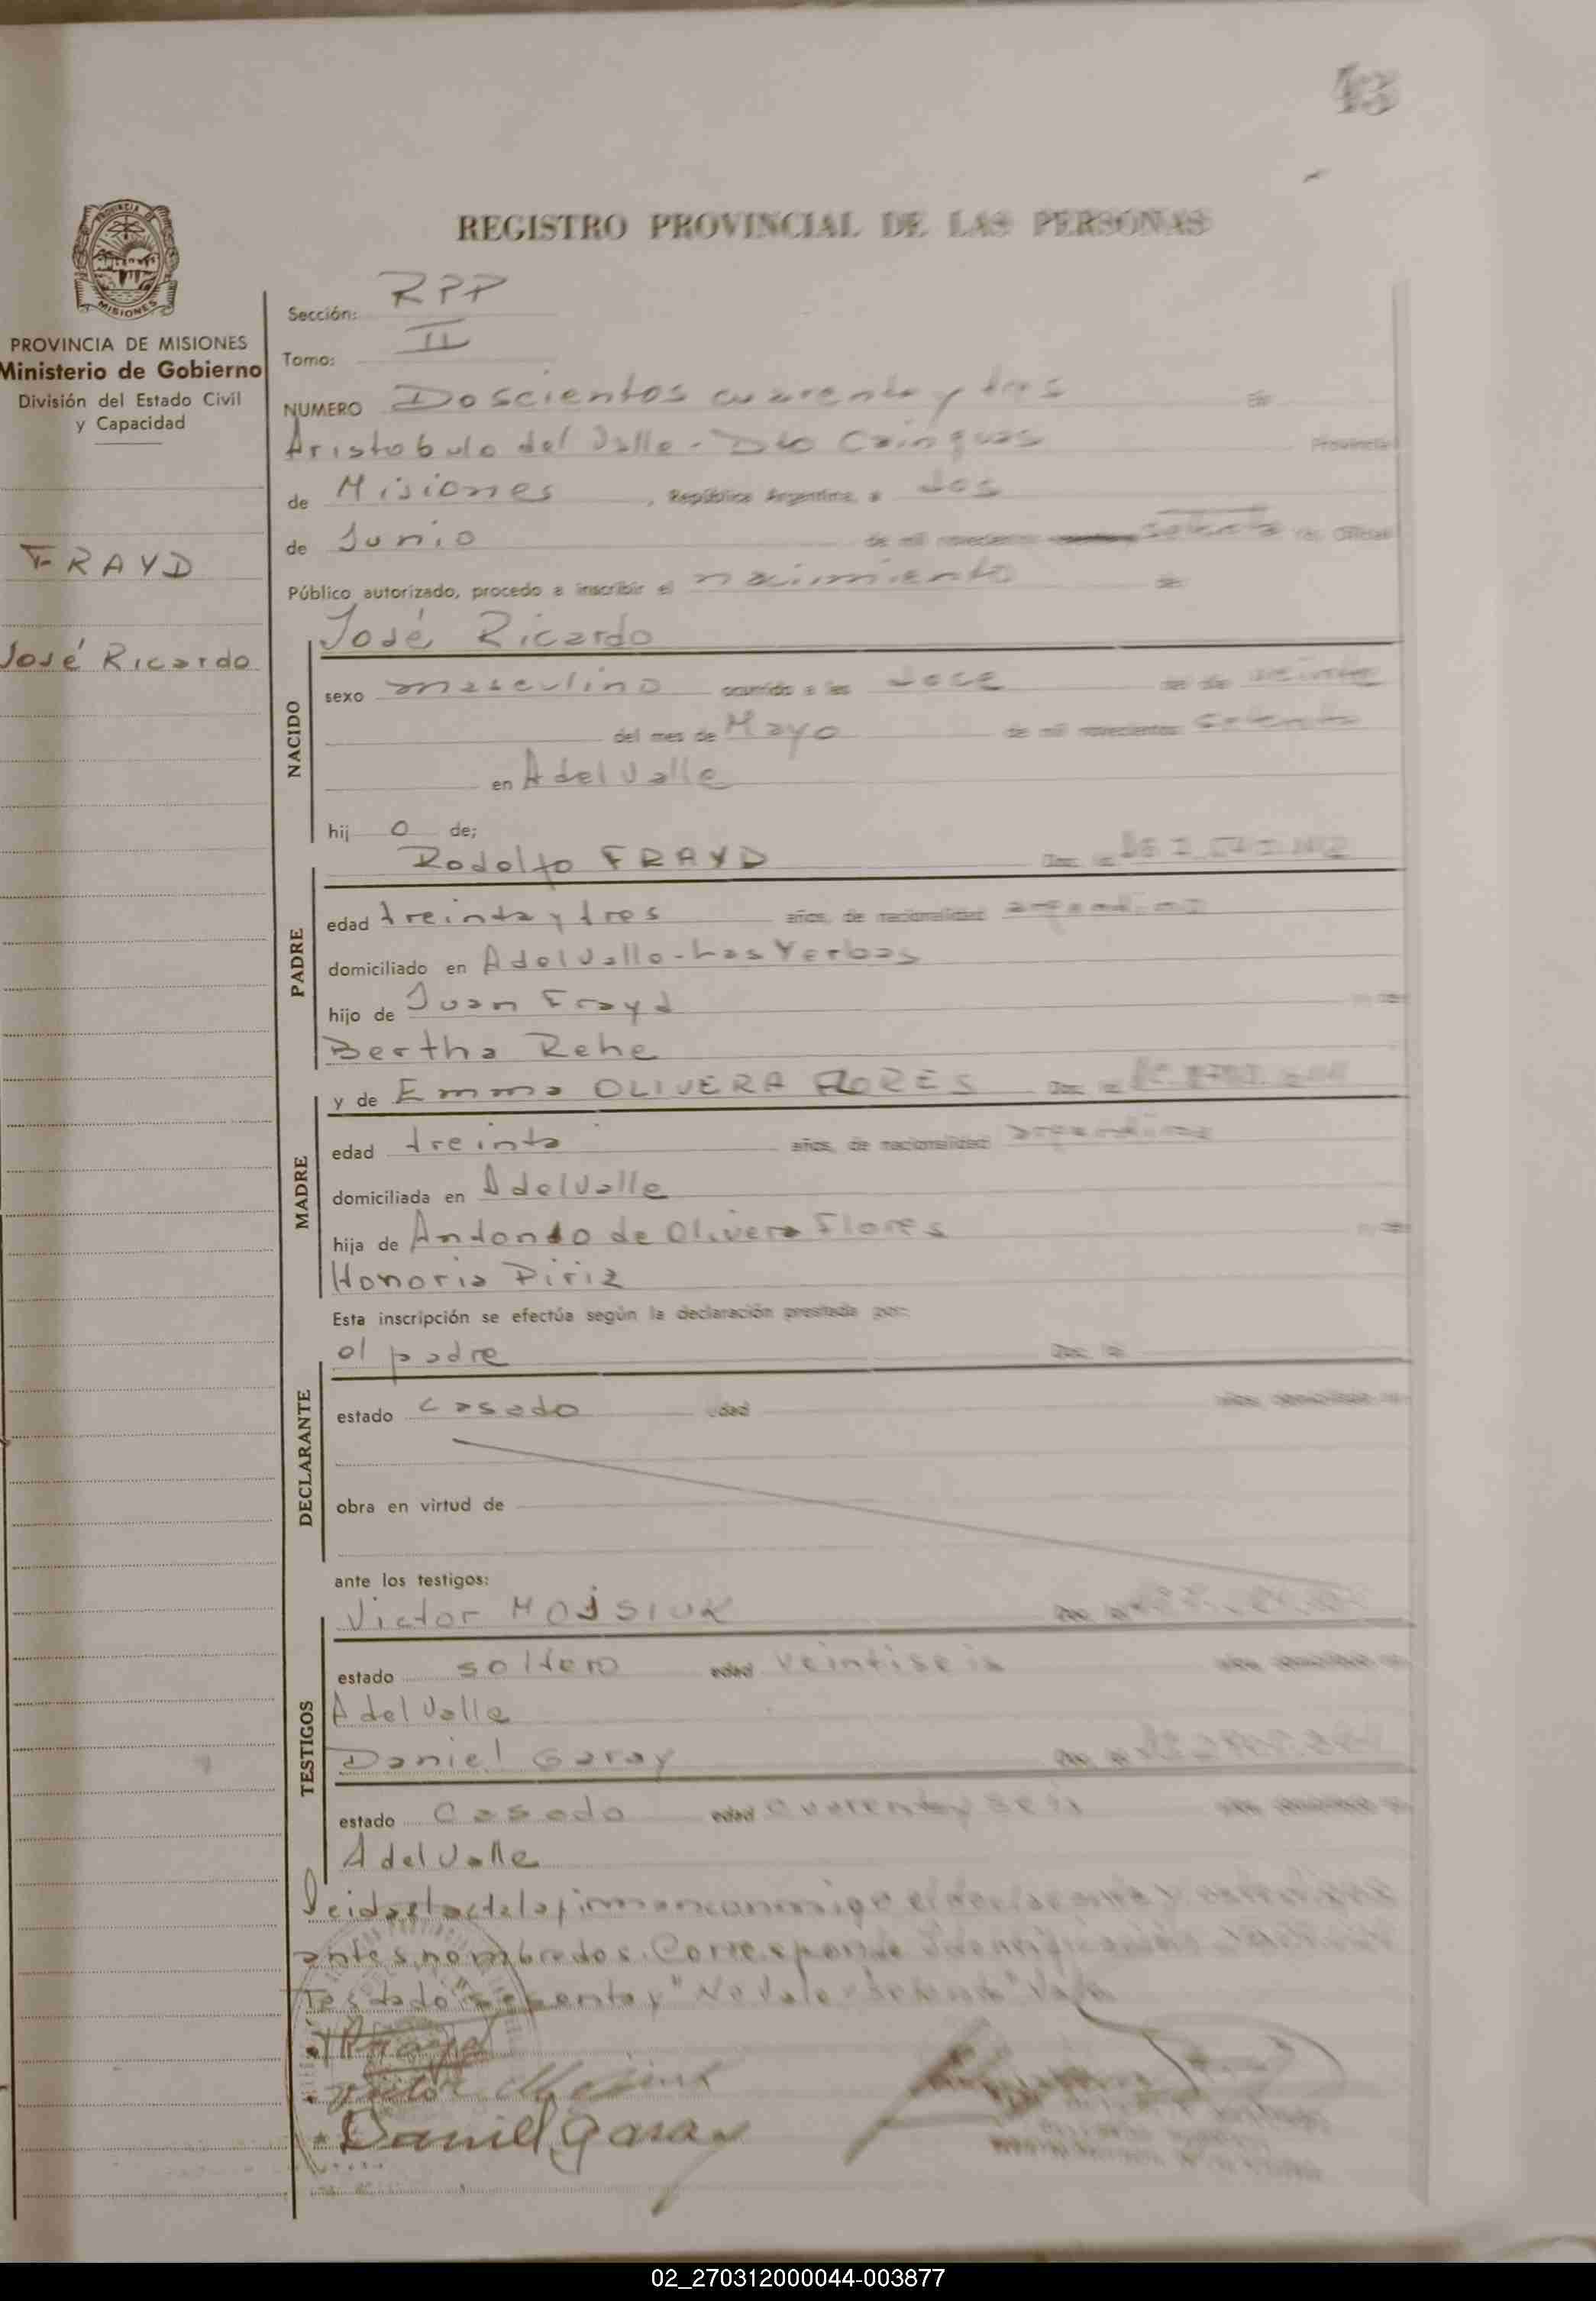 13
REGISTRO PROVINCIAL DE LAS PERSONAS
PROVINCIA DE MISIONES
Ministerio de Gobierno
División del Estado Civil
y Capacidad
FRAYD
José Ricardo
Sección: RPP
Tomo: II
NUMERO Doscientos cuarenta y tres en
Aristobulo del Valle - Dto Cainguas Provincia
de Misiones, República Argentina, a dos
de Junio de mil novecientos setenta yo, Oficial
Público autorizado, procedo a inscribir el nacimiento de
José Ricardo
NACIDO
sexo masculino ocurrido a las doce del día veinte
del mes de Mayo de mil novecientos setenta
en A del Valle
hij o de;
PADRE
Rodolfo FRAYD Doc. n°
edad treinta y tres años, de nacionalidad argentina
domiciliado en A del Valle - Las Yerbas
hijo de Juan Frayd y de
Bertha Rehe
MADRE
y de Emma OLIVERA FLORES Doc. n°
edad treinta años, de nacionalidad argentina
domiciliada en A del Valle
hija de de Olivera Flores y de
Honoria Piriz
Esta inscripción se efectúa según la declaración prestada por:
DECLARANTE
el padre Doc. n°
estado casado edad años, domiciliado en
obra en virtud de
ante los testigos:
TESTIGOS
Victor MOJSIUK Doc. n°
estado soltero edad veintiseis años, domiciliado en
A del Valle
Daniel Garay Doc. n°
estado Casado edad cuarenta y seis años, domiciliado en
A del Valle
Leida el acta la firman conmigo el declarante y
antes nombrados. Corresponde
Testado "sesenta y" No Vale - Setenta" Vale
Daniel Garay
02_270312000044-003877